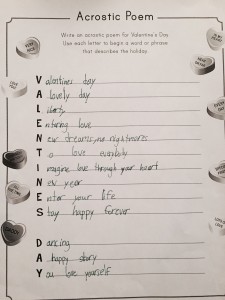 Acrostic Poem
Write an acrostic poem for Valentine's Day.
Use each letter to begin a word or phrase
that describes the holiday.
Valentines day
A lovely day
L
Entering love
New dreams, no nightmares
To love everybody
Imagine love through your heart
New year
Enter your life
Stay happy forever
Dancing
A happy story
You love yourself